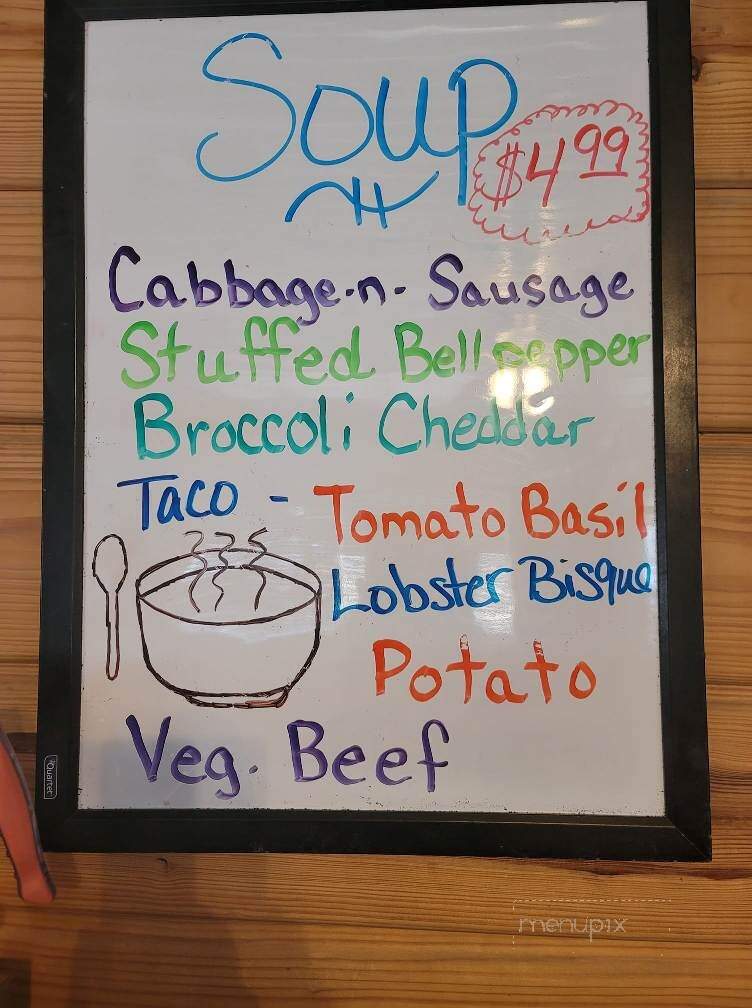 Soup
$4.99
Cabbage-n-Sausage
Stuffed Bell pepper
Broccoli Cheddar
Taco - Tomato Basil
Lobster Bisque
Potato
Veg. Beef
Quartet
menupix